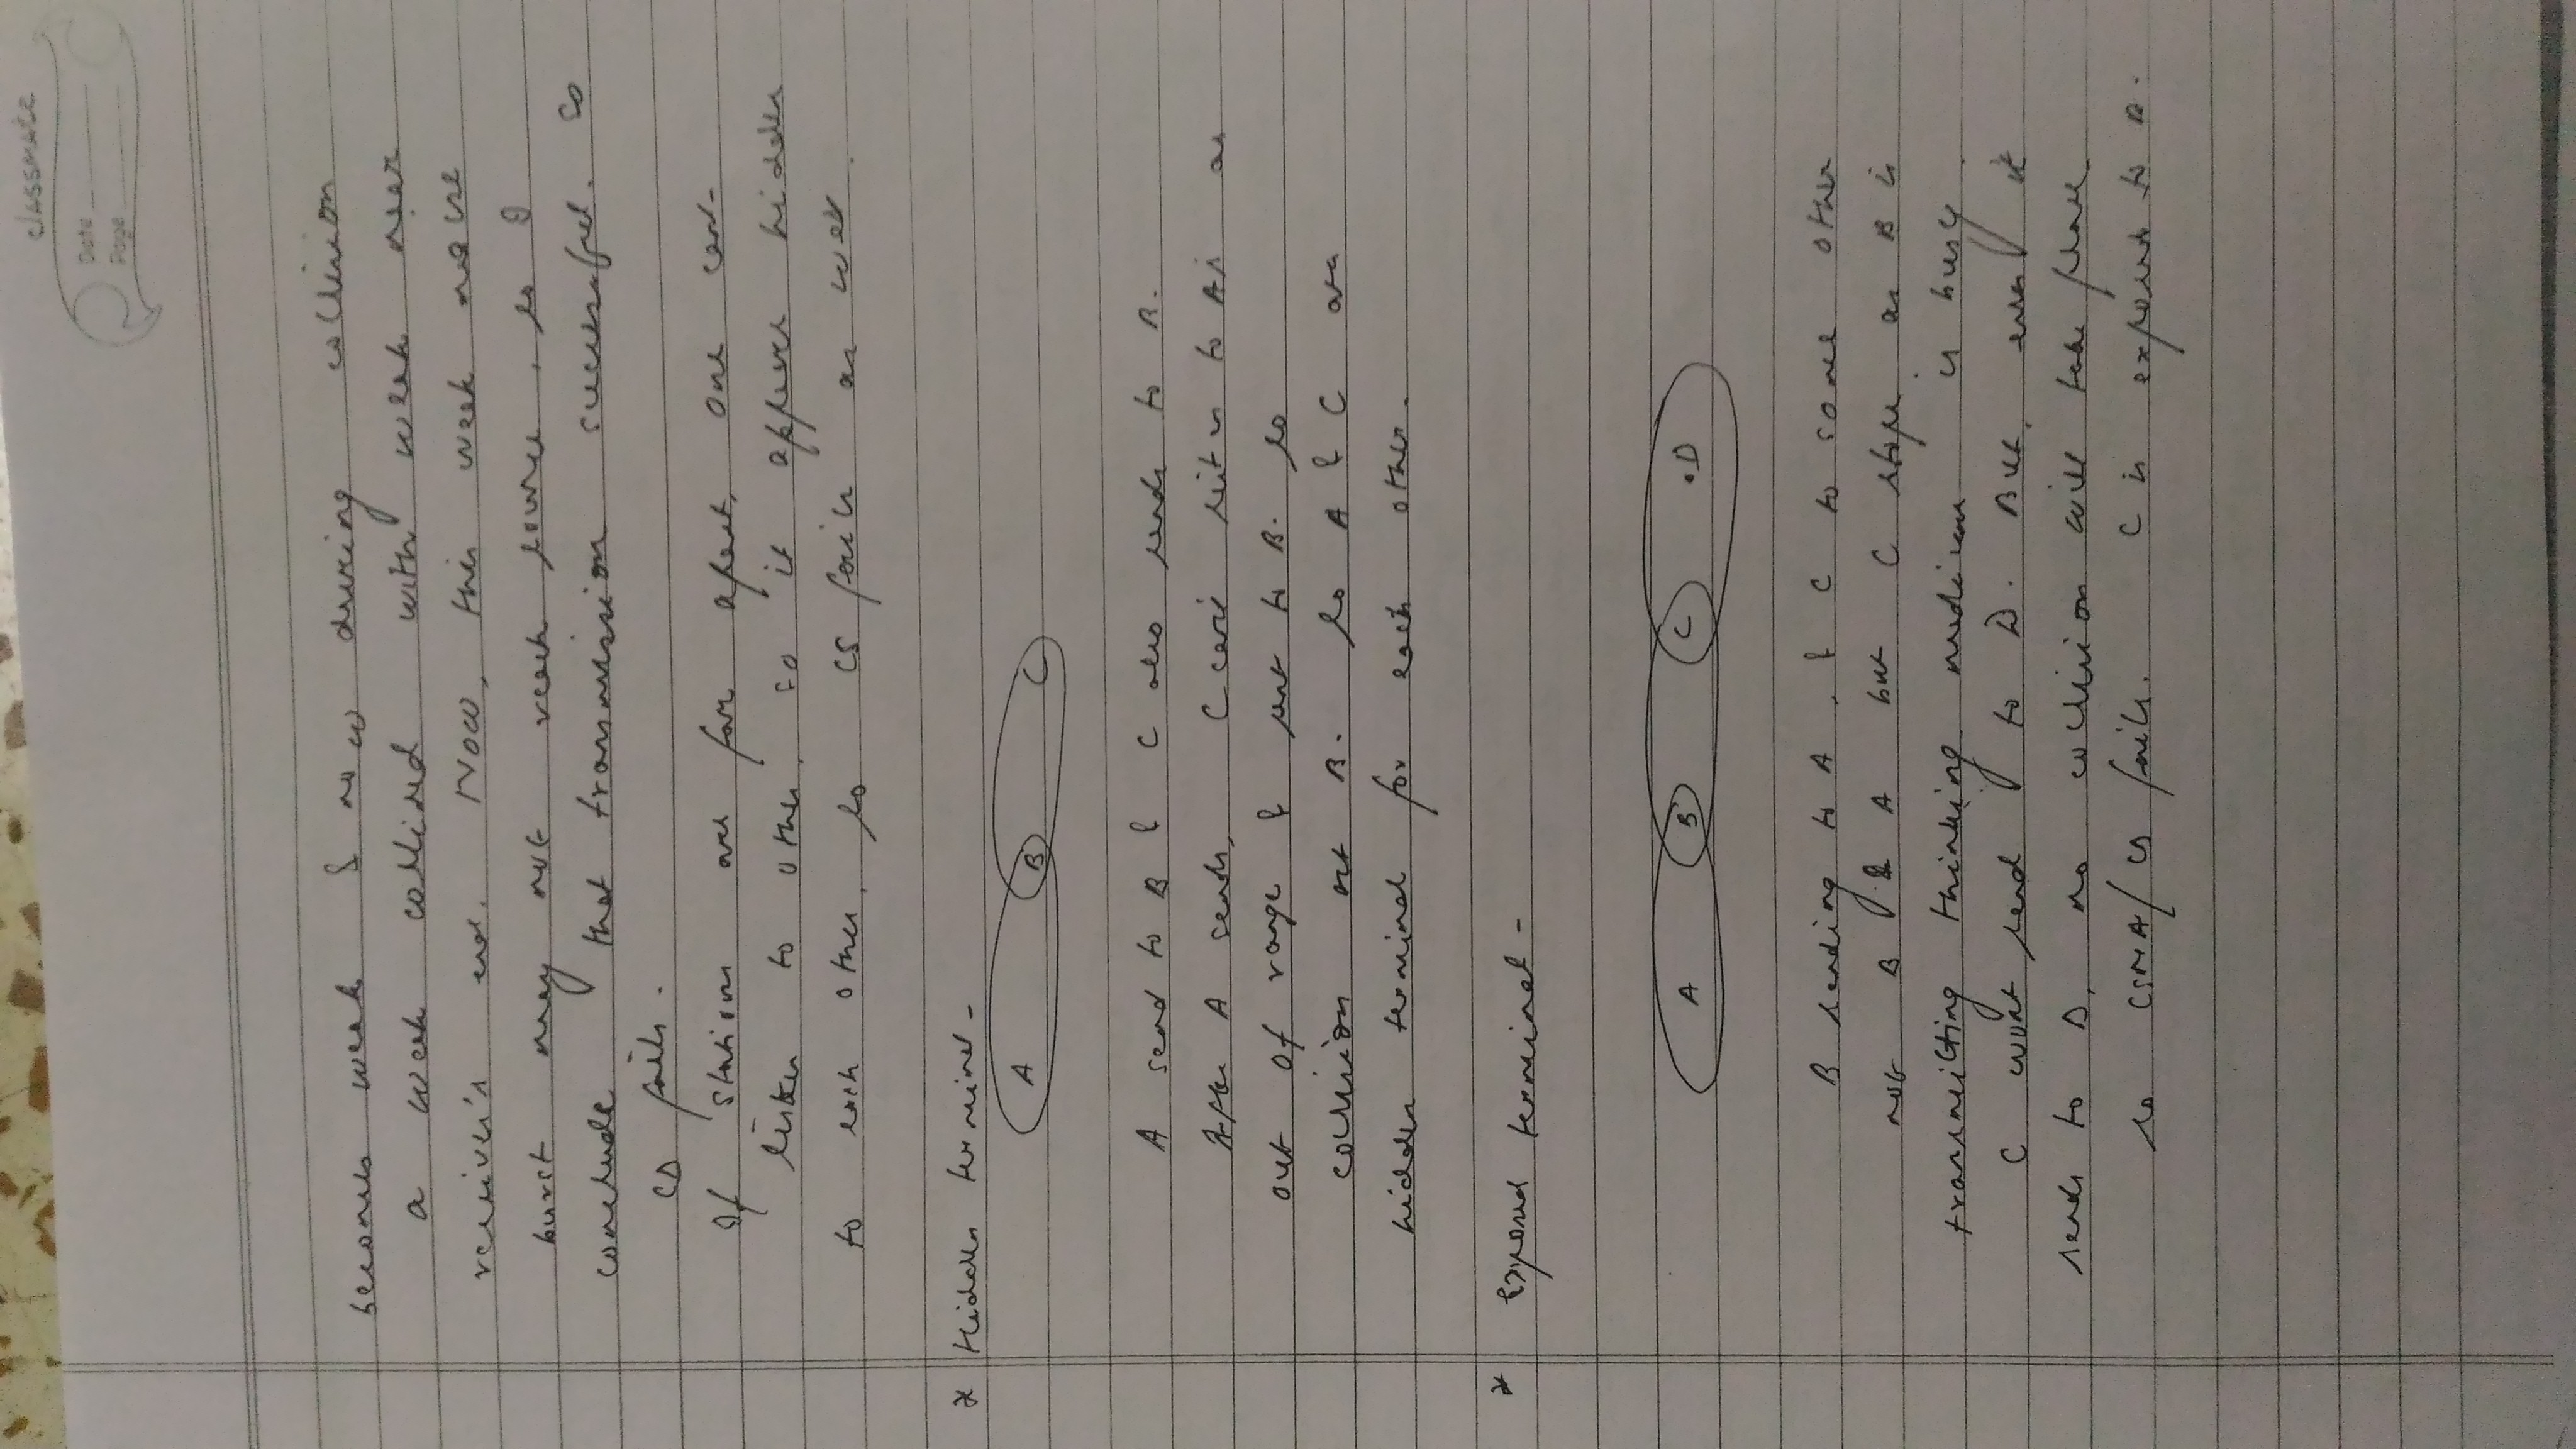 classmate
Date
Page
becomes weak & now during collision
a weak collised with weak near
receiver's end. Now, this weak noise
burst may not reach source, so I
conclude that transmission successful. So
CD fails.
If stations are far apart, one can-
listen to other, so it appears hidden
to each other, so CS fails as well.
* Hidden terminal -
A B C
A send to B & C also sends to B.
After A sends, C can't listen to A's as
out of range & sent to B. so
collision at B. So A & C are
hidden terminal for each other.
* Exposed terminal -
A B C .D
B sending to A, & C to some other
not B & A but C stops as B is
transmitting thinking medium is busy.
C wont send to D. But, even it
sends to D, no collision will take place
so CSMA/CD fails. C is exposed to B.